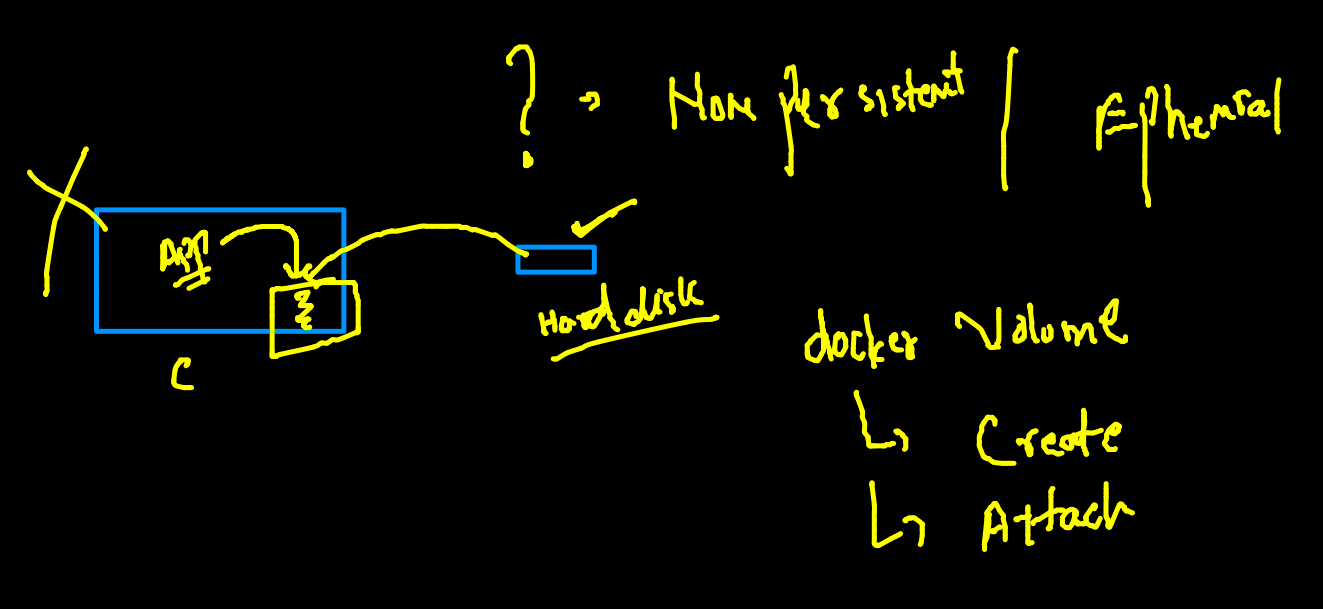 ? → Non persistent | Ephemral
App
C
Hard disk
docker Volume
↳ Create
↳ Attach